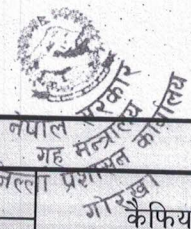 नेपाल सरकार
गृह मन्त्रालय
जिल्ला प्रशासन कार्यालय
गोरखा
कैफिय